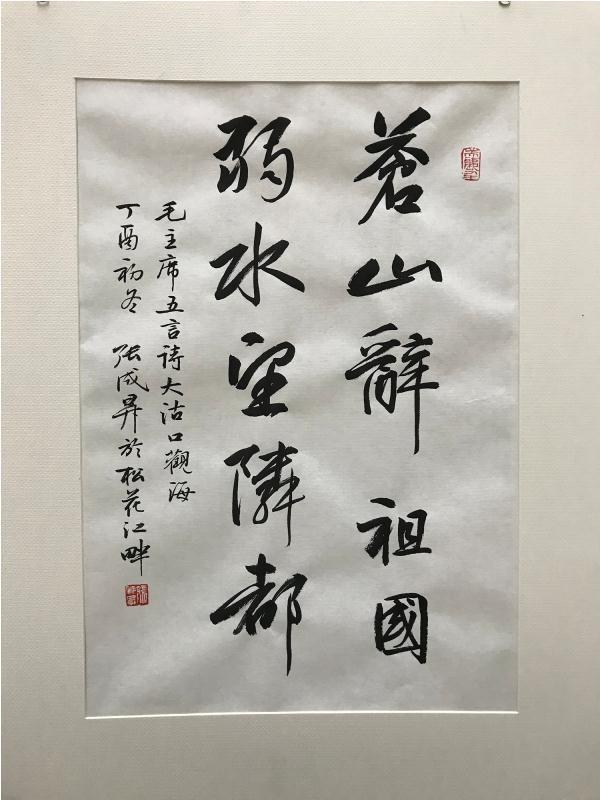 蒼山辭祖國
弱水望隣都
毛主席五言诗大沽口觀海
丁酉初冬 张成昇於松花江畔